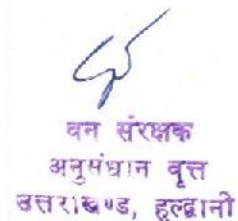 वन संरक्षक
अनुसंधान वृत्त
उत्तराखण्ड, हल्द्वानी